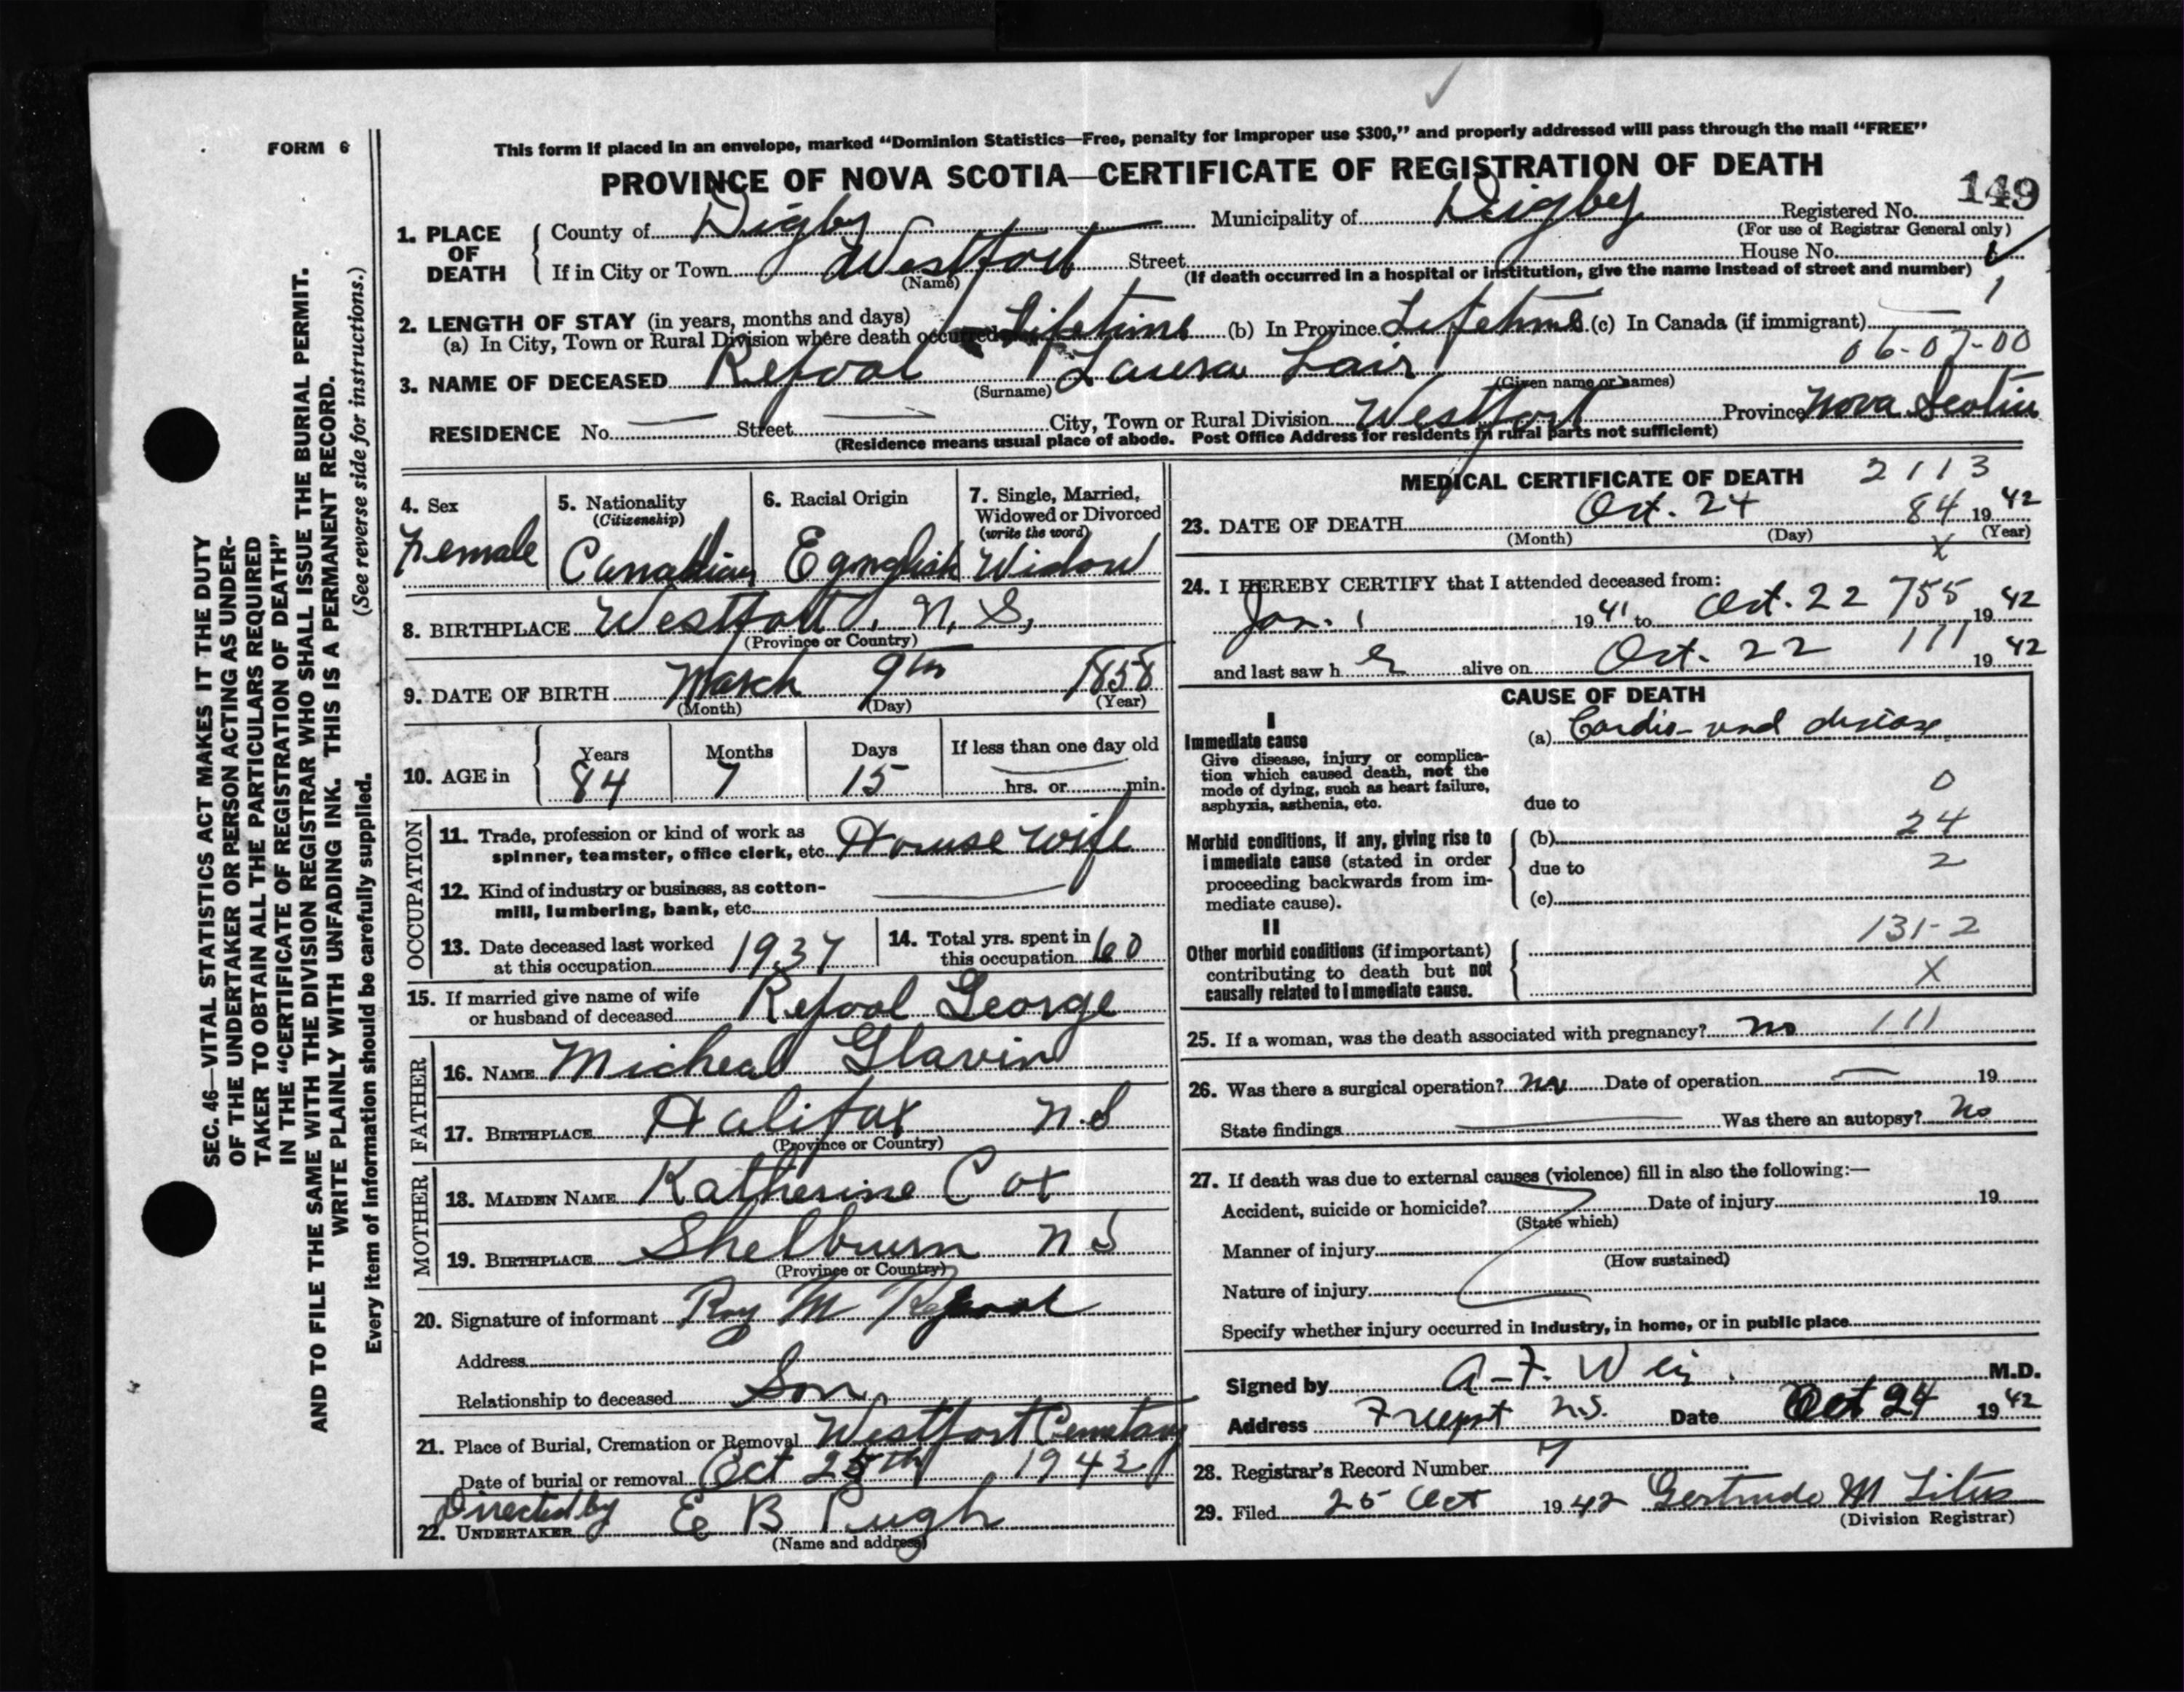 FORM 6
This form if placed in an envelope, marked “Dominion Statistics—Free, penalty for improper use $300,” and properly addressed will pass through the mail “FREE”
PROVINCE OF NOVA SCOTIA—CERTIFICATE OF REGISTRATION OF DEATH
149
1. PLACE OF DEATH
County of Digby Municipality of Digby Registered No.
(For use of Registrar General only)
If in City or Town Westport Street House No.
(Name) (If death occurred in a hospital or institution, give the name instead of street and number)
1
2. LENGTH OF STAY (in years, months and days)
(a) In City, Town or Rural Division where death occurred Lifetime (b) In Province Lifetime (c) In Canada (if immigrant)
06-07-00
3. NAME OF DECEASED Laura
(Surname) (Given name or names)
RESIDENCE No. — Street — City, Town or Rural Division Westport Province Nova Scotia
(Residence means usual place of abode. Post Office Address for residents in rural parts not sufficient)
4. Sex
Female
5. Nationality
(Citizenship)
Canadian
6. Racial Origin
7. Single, Married, Widowed or Divorced
(write the word)
Widow
8. BIRTHPLACE Westport, N. S.
(Province or Country)
9. DATE OF BIRTH March 9th 1858
(Month) (Day) (Year)
10. AGE in
Years 84
Months 7
Days 15
If less than one day old
hrs. or min.
OCCUPATION
11. Trade, profession or kind of work as
spinner, teamster, office clerk, etc. House wife
12. Kind of industry or business, as cotton-
mill, lumbering, bank, etc.
13. Date deceased last worked
at this occupation 1937
14. Total yrs. spent in
this occupation 60
15. If married give name of wife
or husband of deceased George
FATHER
16. NAME Micheal Glavin
17. BIRTHPLACE Halifax N.S
(Province or Country)
MOTHER
18. MAIDEN NAME Katherine Cox
19. BIRTHPLACE Shelburn N S
(Province or Country)
20. Signature of informant Roy M
Address
Relationship to deceased Son
21. Place of Burial, Cremation or Removal Westport Cemetary
Date of burial or removal Oct 25th 1942
Directed by
22. UNDERTAKER E B Pugh
(Name and address)
MEDICAL CERTIFICATE OF DEATH 2113
23. DATE OF DEATH Oct. 24 84 1942
(Month) (Day) (Year)
X
24. I HEREBY CERTIFY that I attended deceased from:
Jan. 1 1941 to Oct. 22 755 1942
and last saw h er alive on Oct. 22 111 1942
CAUSE OF DEATH
I
Immediate cause
Give disease, injury or complica-
tion which caused death, not the
mode of dying, such as heart failure,
asphyxia, asthenia, etc.
(a) disease
0
due to
Morbid conditions, if any, giving rise to
immediate cause (stated in order
proceeding backwards from im-
mediate cause).
(b) 24
due to 2
(c)
II
Other morbid conditions (if important)
contributing to death but not
causally related to immediate cause.
131-2
X
25. If a woman, was the death associated with pregnancy? no 111
26. Was there a surgical operation? no Date of operation — 19
State findings — Was there an autopsy? No
27. If death was due to external causes (violence) fill in also the following:—
Accident, suicide or homicide? Date of injury 19
(State which)
Manner of injury
(How sustained)
Nature of injury
Specify whether injury occurred in industry, in home, or in public place
Signed by A. F. M.D.
Address N.S. Date Oct 24 1942
28. Registrar's Record Number 7
29. Filed 25 Oct 1942 Gertrude M Titus
(Division Registrar)
SEC. 46—VITAL STATISTICS ACT MAKES IT THE DUTY
OF THE UNDERTAKER OR PERSON ACTING AS UNDER-
TAKER TO OBTAIN ALL THE PARTICULARS REQUIRED
IN THE “CERTIFICATE OF REGISTRATION OF DEATH”
AND TO FILE THE SAME WITH THE DIVISION REGISTRAR WHO SHALL ISSUE THE BURIAL PERMIT.
WRITE PLAINLY WITH UNFADING INK. THIS IS A PERMANENT RECORD.
(See reverse side for instructions.)
Every item of information should be carefully supplied.